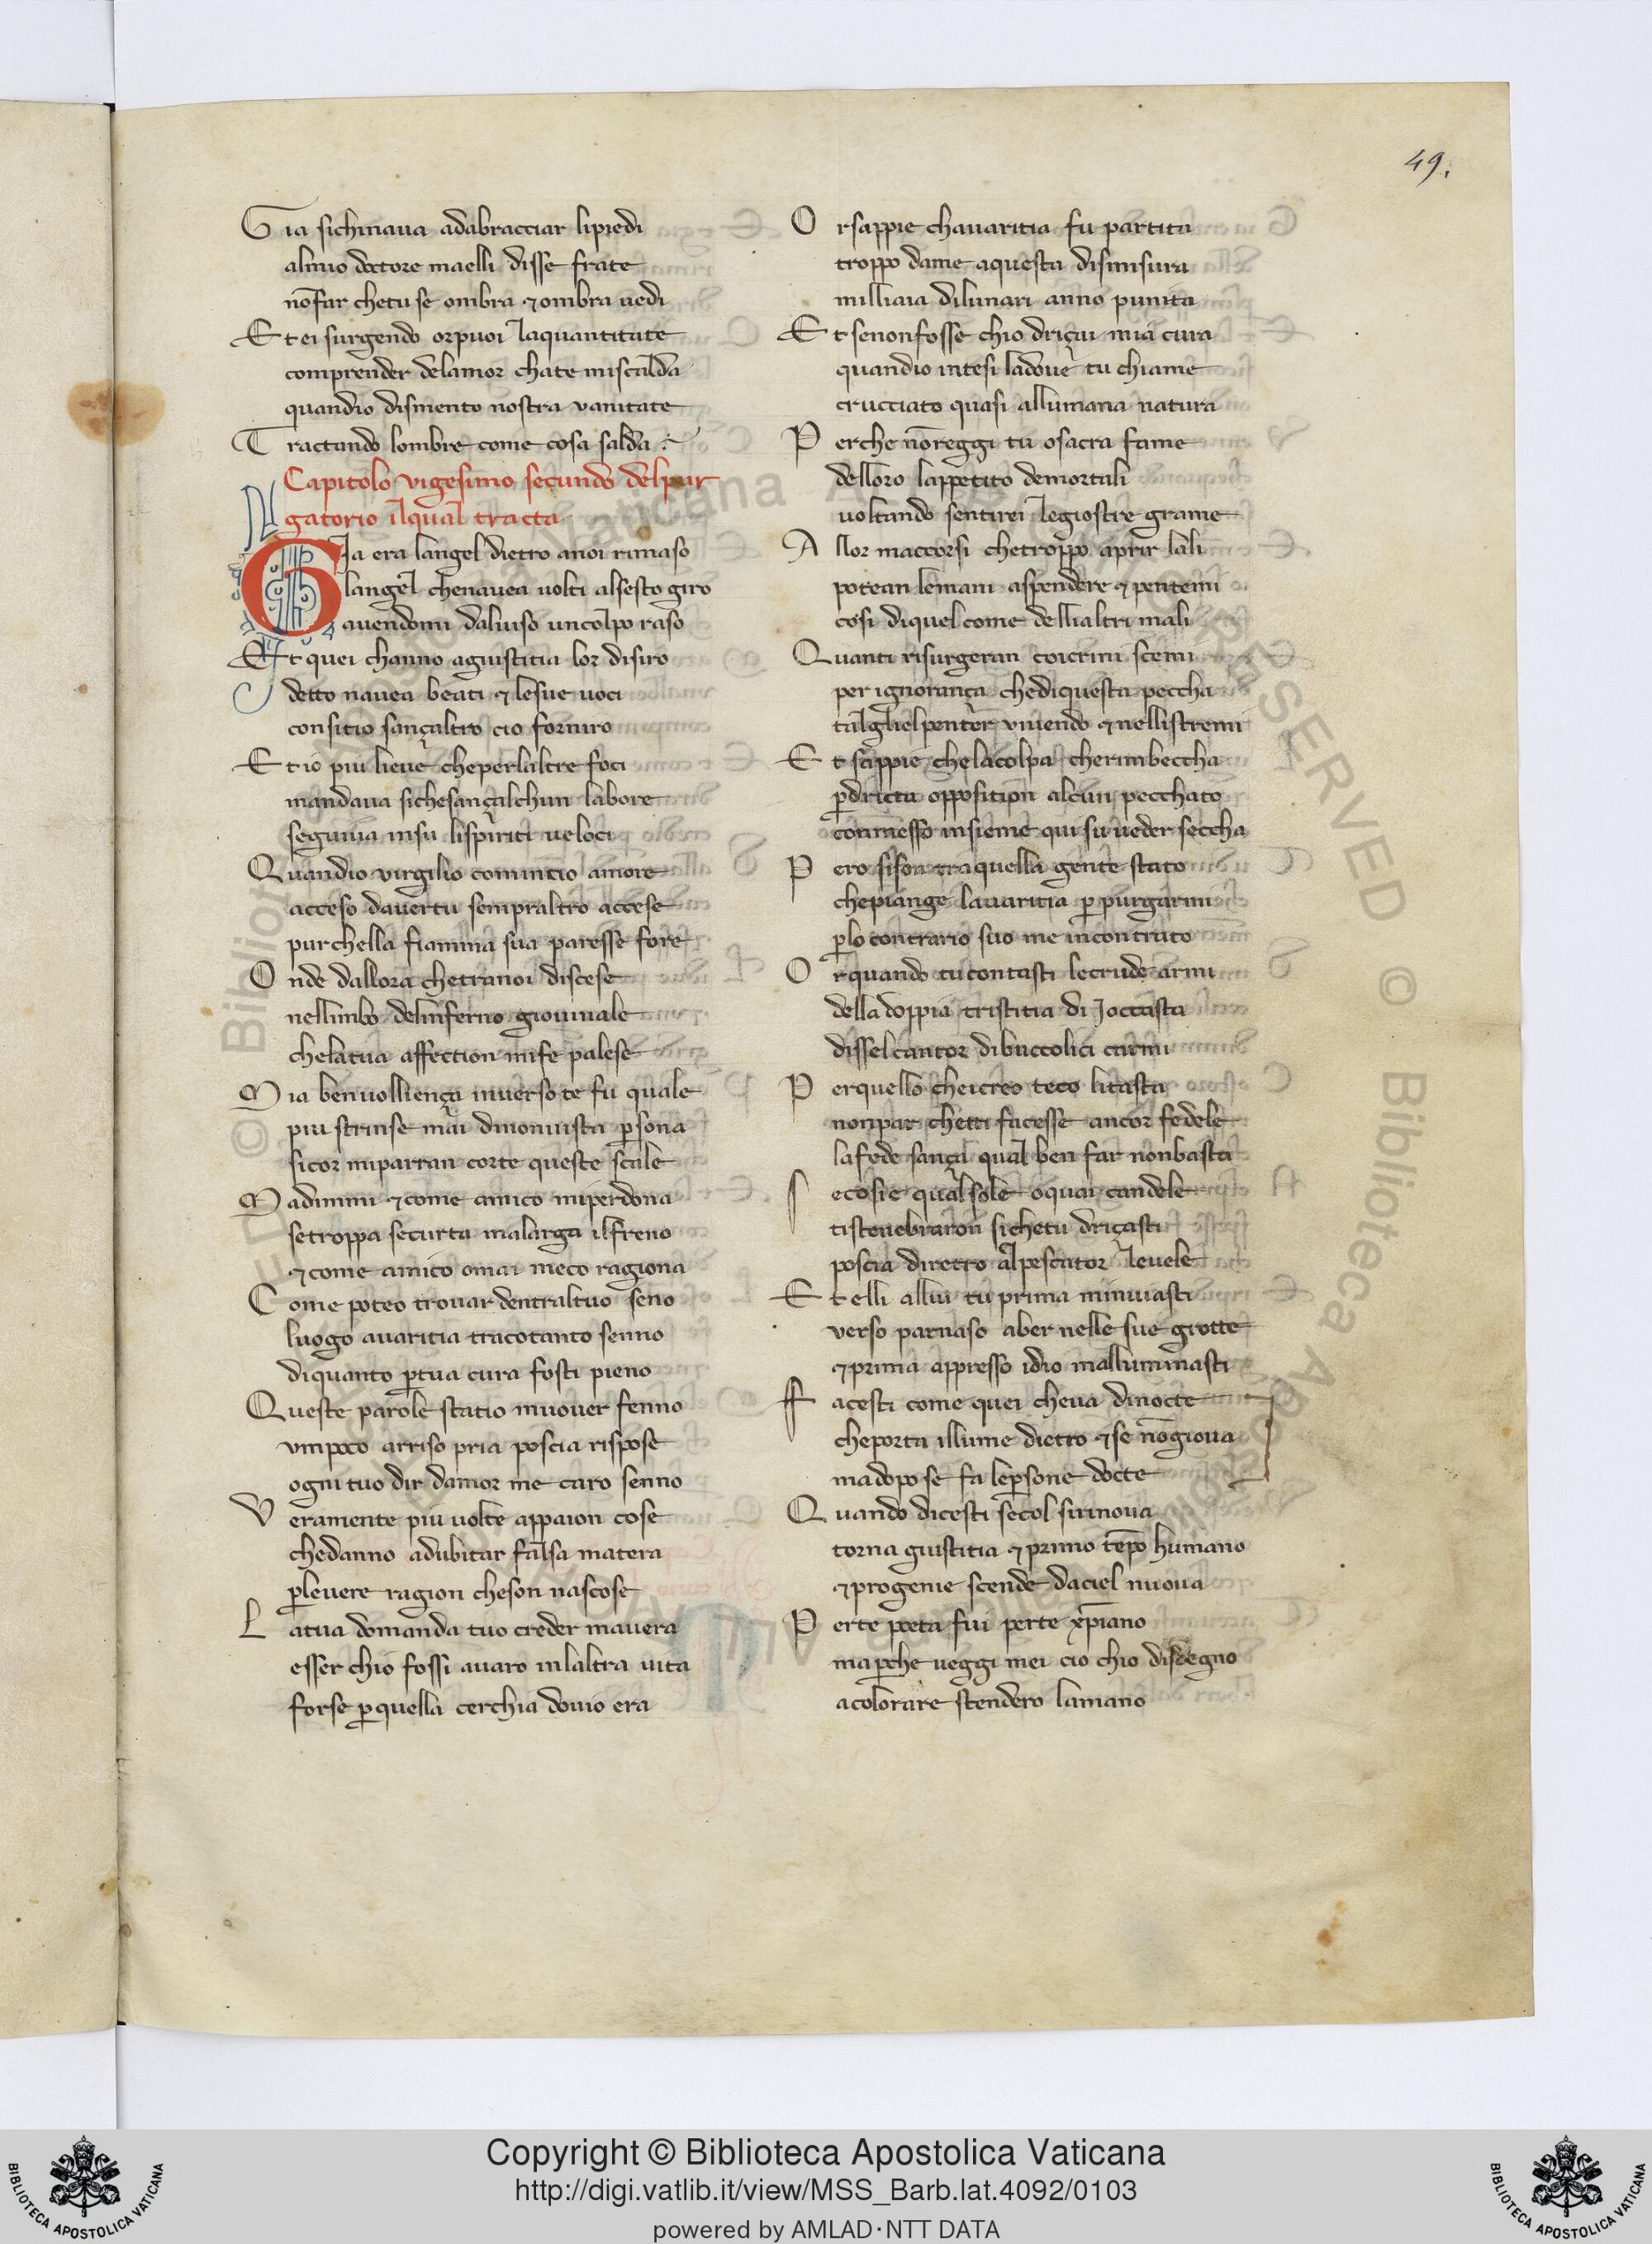 49.
Gia sichinaua adabracciar lipiedi
almio doctore maelli disse frate
nōfar chetu se ombra ⁊ ombra uedi
Et ei surgendo orpuoi laquantitate
comprender delamor chate miscalda
quandio dismento nostra vanitate
Tractando lombre come cosa salda
Capitolo vigesimo secundo delpur
gatorio ilqual tracta
Gia era langel dietro anoi rimaso
langel chenauea uolti alsesto giro
auendomi daluiso uncolpo raso
Et quei channo agiustitia lor disiro
detto nauea beati ⁊ lesue uoci
con sitio sança altro cio forniro
Et io piu lieue cheperlaltre foci
mandaua sichesançalchun labore
seguiua insu lispiriti ueloci
Quandio virgilio comincio amore
acceso dauertu sempraltro accese
purchella fiamma sua paresse fore
Onde dallora chetranoi discese
nellimbo delinferno giouinale
chelatua affection mife palese
Mia benuolliença inuerso te fu quale
piu strinse mai dinonuista p̄sona
sicor miparran corte queste scale
Madimmi ⁊ come amico miperdona
setroppa securta malarga ilfreno
⁊ come amico omai meco ragiona
Come poteo trouar dentraltuo seno
luogo auaritia tracotanto senno
diquanto p̄tua cura fosti pieno
Queste parole statio muouer fenno
vmpoco arriso pria poscia rispose
ogni tuo dir damor me caro senno
Veramente piu uolte appaion cose
chedanno adubitar falsa matera
p̄leuere ragion cheson nascose
Latua domanda tuo creder mauera
esser chio fossi auaro inlaltra uita
forse p̄quella cerchia douio era
Orsappie chauaritia fu partita
troppo dame aquesta dismisura
milliaia dilunari anno punita
Et senonfosse chio driçai mia cura
quandio intesi ladoue tu chiame
crucciato quasi allumana natura
Perche nōreggi tu osacra fame
delloro lappetito demortali
uoltando sentirei legiostre grame
Allor maccorsi chetroppo aprir lali
potean lemani aspendere ⁊ pentemi
cosi diquel come dellialtri mali
Quanti risurgeran coicrini scemi
per ignorança chediquesta peccha
talglielpenter viuendo ⁊ nellistremi
Et sappie chelacolpa cherimbeccha
p̄dricta opposition alcun pecchato
conmesso insieme qui su ueder seccha
Pero sison traquella gente stato
chepiange lauaritia p̄ purgarmi
p̄lo contrario suo me incontrato
Orquando tucontasti lecrude armi
della doppia tristitia di Joccasta
dissel cantor dibuccolici carmi
Perquello cheicreo teco litasta
nonpar chetti facesse ancor fedele
lafede sança qual ben far nonbasta
secosie qual sole oquai candele
tistenebraron sichetu driçasti
poscia diretro alpescator leuele
Et elli allui tu prima minuiasti
verso parnaso aber nelle sue grotte
⁊ prima appresso idio malluminasti
Facesti come quei cheua dinocte
cheporta illume dietro ⁊ se nōgioua
madopo se fa lep̄sone docte
Quando dicesti secol sirinoua
torna giustitia ⁊ primo tēpo humano
⁊ progenie scende daciel nuoua
Perte poeta fui perte xp̄iano
map̄che ueggi mei cio chio disegno
acolorare stendero lamano
© Biblioteca Apostolica Vaticana ALL RIGHTS RESERVED
Copyright © Biblioteca Apostolica Vaticana
http://digi.vatlib.it/view/MSS_Barb.lat.4092/0103
powered by AMLAD·NTT DATA
BIBLIOTECA APOSTOLICA VATICANA
BIBLIOTECA APOSTOLICA VATICANA